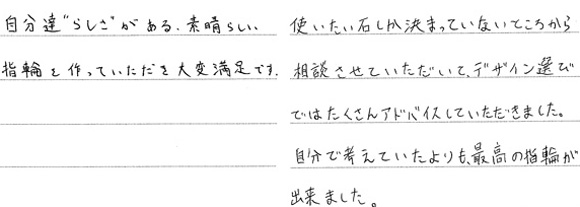 自分達"らしさ"がある、素晴らしい
指輪を作っていただき大変満足です。
使いたい石しか決まっていないところから
相談させていただいて、デザイン選び
ではたくさんアドバイスしていただきました。
自分で考えていたよりも、最高の指輪が
出来ました。